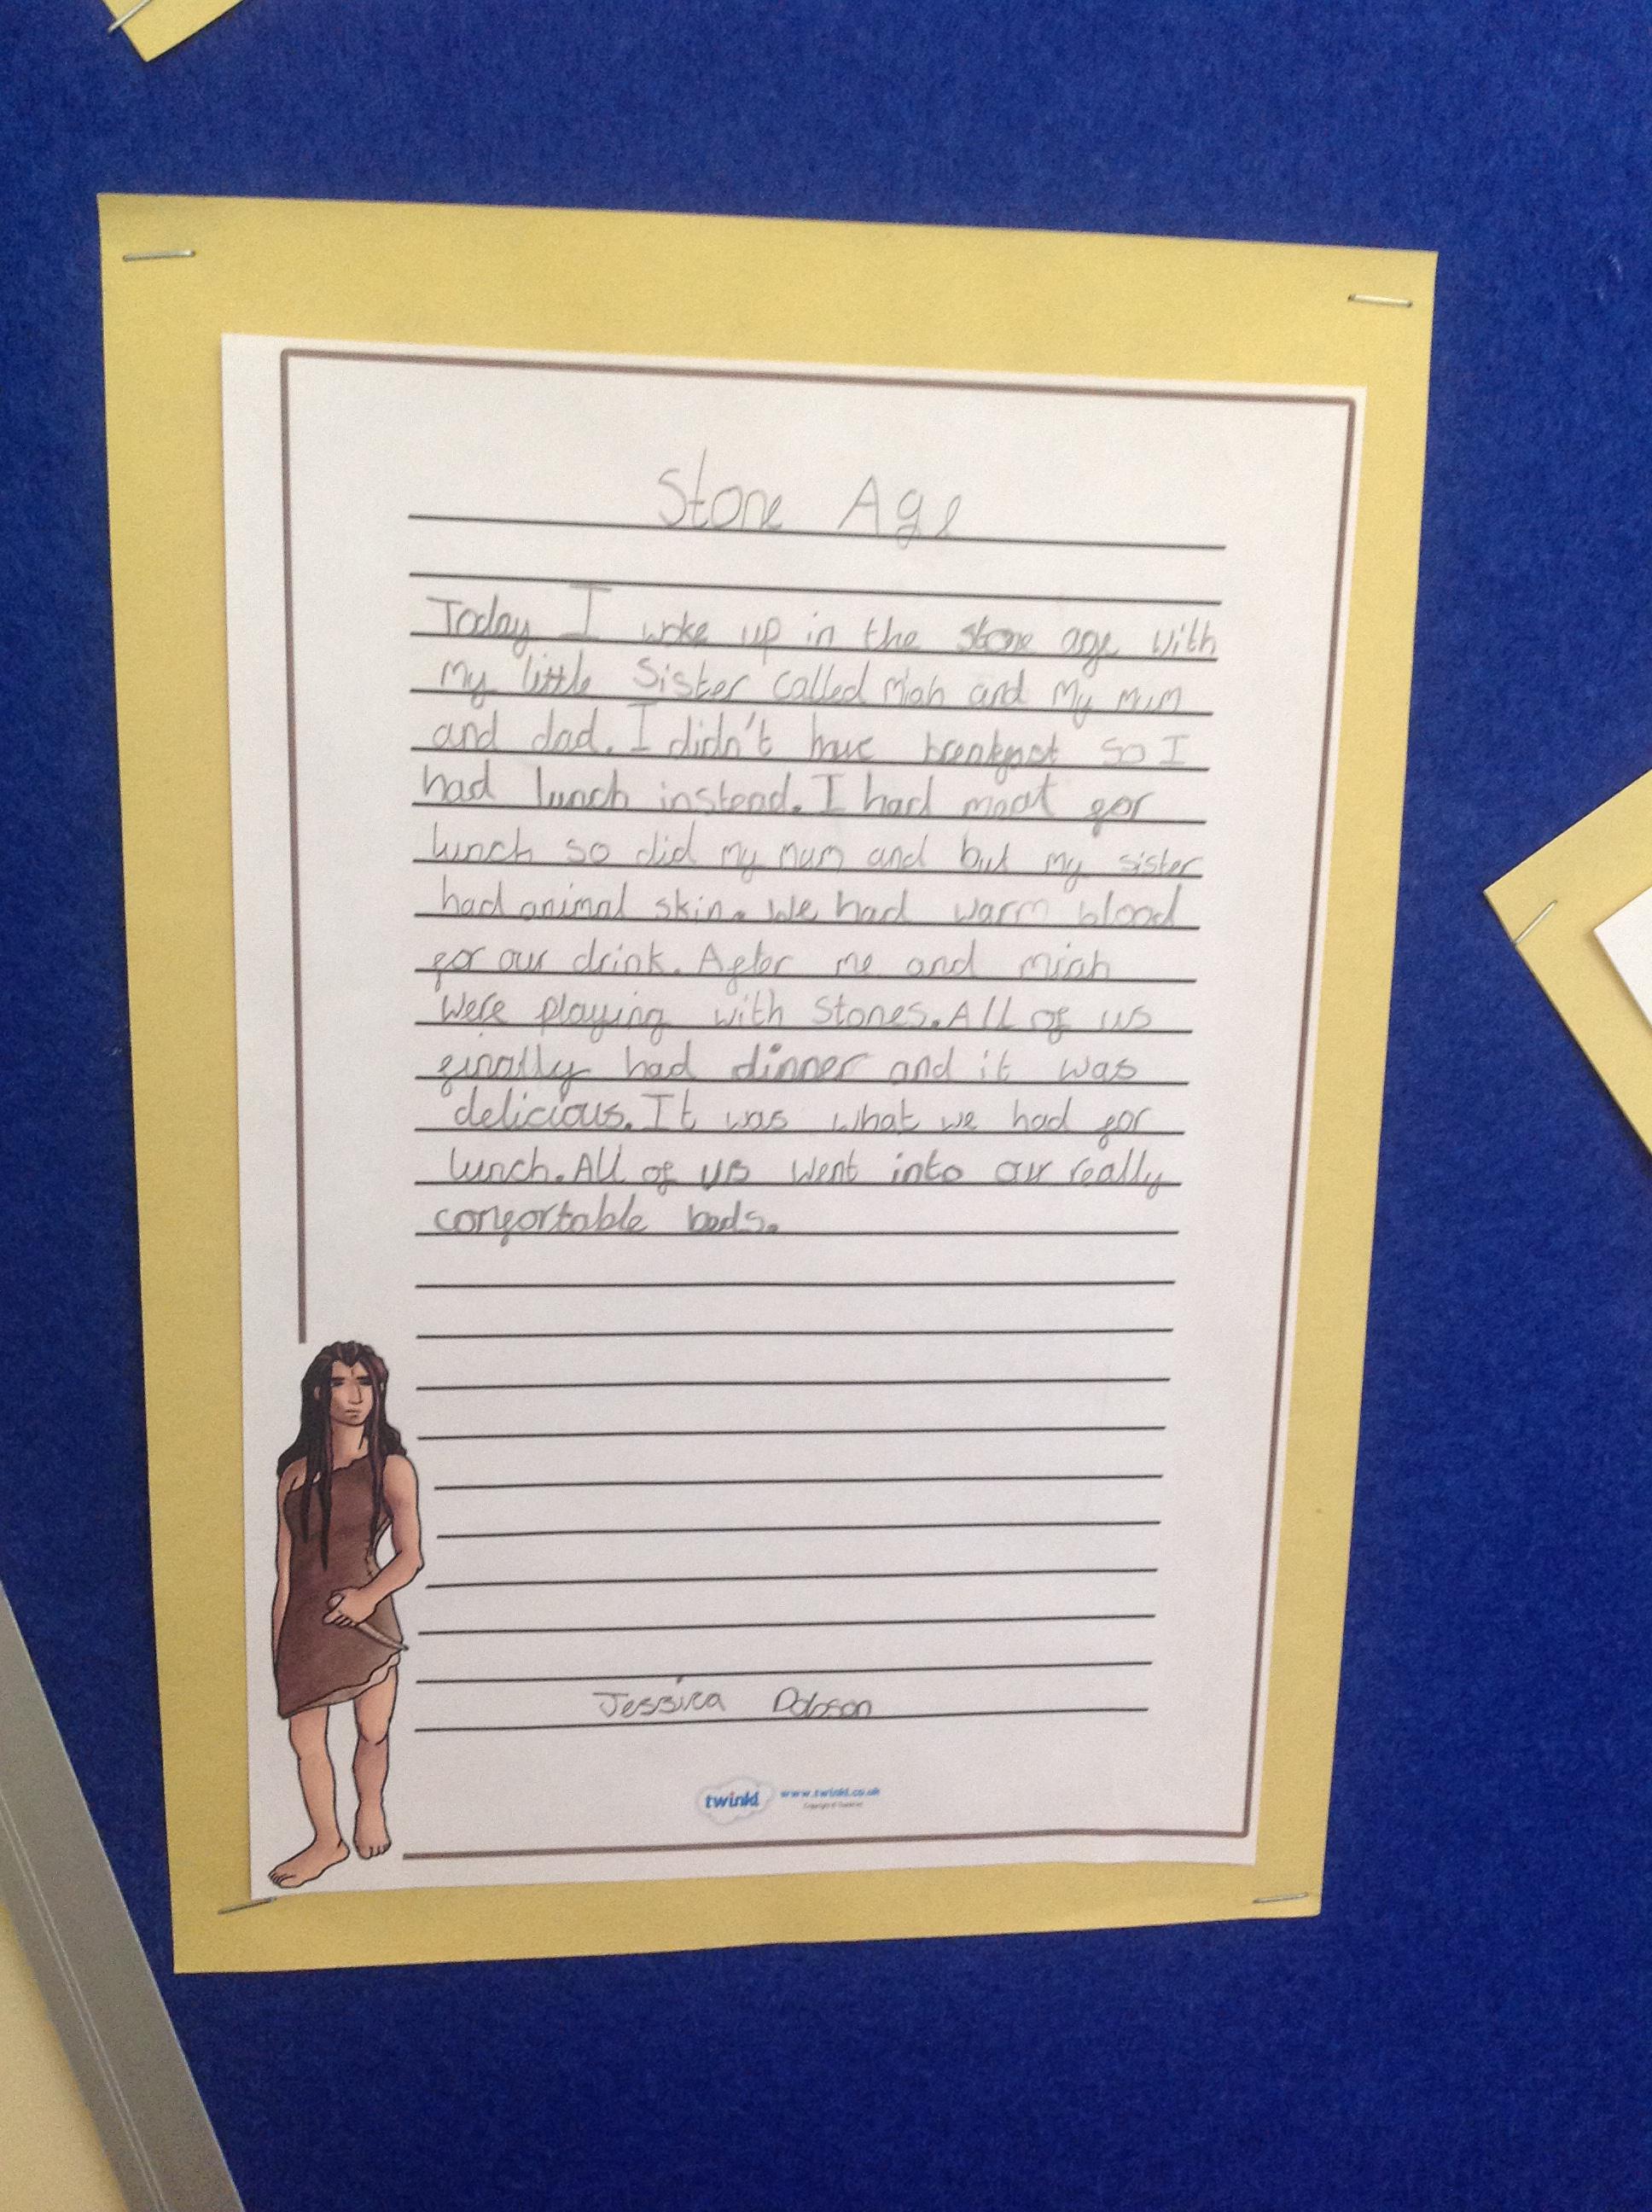 Stone Age
Today I woke up in the stone age with
my little Sister called miah and my mum
and dad. I didn't have breakfast so I
had lunch instead. I had meat for
lunch so did my mum and but my sister
had animal skin. We had warm blood
for our drink. After me and miah
were playing with stones. All of us
finally had dinner and it was
delicious. It was what we had for
lunch. All of us went into our really
comfortable beds.
Jessica Dobson
twinkl www.twinkl.co.uk